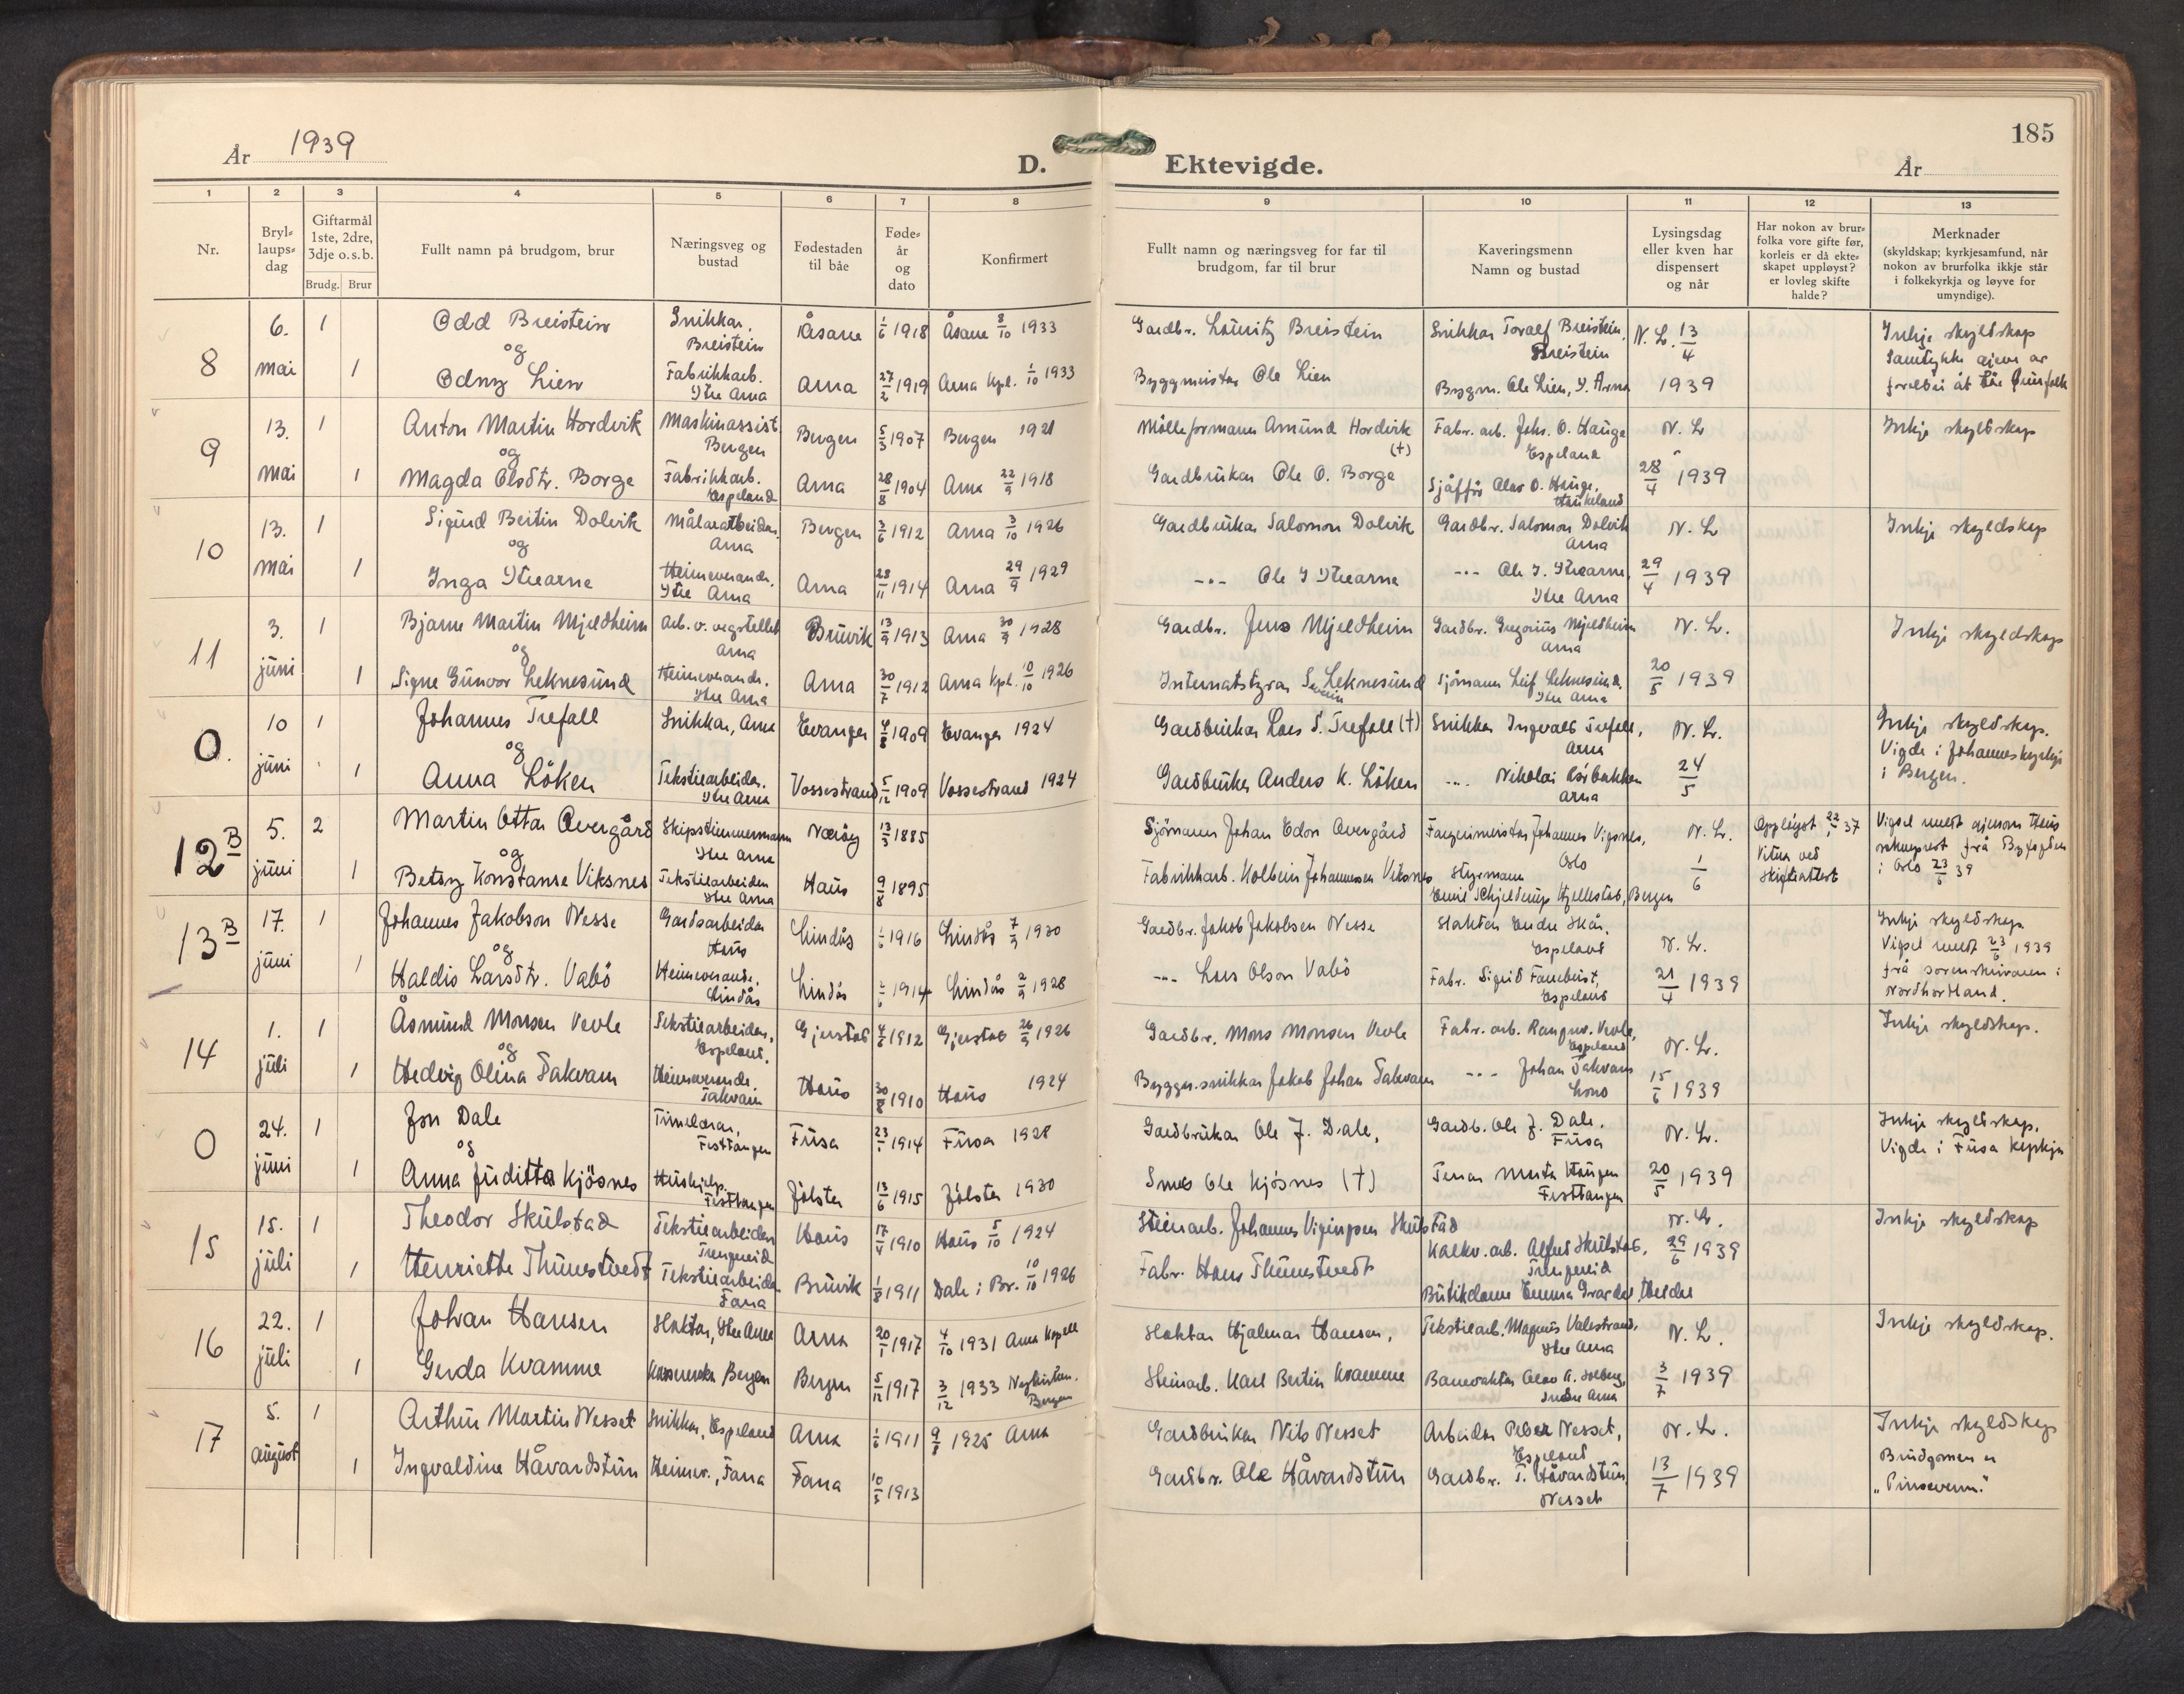 År 1939
D. Ektevigde.
År
185
1 2 3 4 5 6 7 8 9 10 11 12 13
Nr.
Bryllaupsdag
Giftarmål 1ste, 2dre, 3dje o.s.b.
Brudg. Brur
Fullt namn på brudgom, brur
Næringsveg og bustad
Fødestaden til båe
Føde-år og dato
Konfirmert
Fullt namn og næringsveg for far til brudgom, far til brur
Kaveringsmenn Namn og bustad
Lysingsdag eller kven har dispensert og når
Har nokon av brurfolka vore gifte før, korleis er då ekteskapet uppløyst? er lovleg skifte halde?
Merknader (skyldskap; kyrkjesamfund, når nokon av brurfolka ikkje står i folkekyrkja og løyve for umyndige).
8
6. mai
1 Odd Breistein Snikkar, Breistein Åsane 1/6 1918 Åsane 8/10 1933 Gardbr. Lauritz Breistein Snikkar Toralf Breistein, Breistein N. L. 13/4 Inkje skyldskap
og
1 Odny Lien Fabrikkarb. Ytre Arna Arna 27/2 1919 Arna kpl. 1/10 1933 Byggmeistar Ole Lien Byggm. Ole Lien, Y. Arna 1939
9
13. mai
1 Anton Martin Hordvik Maskinassist. Bergen Bergen 5/3 1907 Bergen 1921 Mølleformann Amund Hordvik (†) Fabr. arb. Johs. O. Hauge Espeland N. L. Inkje skyldskap
og
1 Magda Olsdtr. Borge Fabrikkarb. Espeland Arna 28/8 1904 Arna 22/9 1918 Gardbrukar Ole O. Borge Sjåffør Olav O. Hauge, Haukeland 28/4 1939
10
13. mai
1 Sigurd Bertin Dolvik Målararbeidar. Arna Bergen 3/6 1912 Arna 3/10 1926 Gardbrukar Salomon Dolvik Gardbr. Salomon Dolvik Arna N. L. Inkje skyldskap
og
1 Inga Ytrearne Heimeverande. Ytre Arna Arna 28/11 1914 Arna 29/9 1929 -"- Ole J Ytrearne -"- Ole J. Ytrearne, Ytre Arna 29/4 1939
11
3. juni
1 Bjarne Martin Mjeldheim Arb. v. vegstellet Arna Bruvik 13/9 1913 Arna 30/9 1928 Gardbr. Jens Mjeldheim Gardbr. Gregorius Mjeldheim Arna N. L. Inkje skyldskap
og
1 Signe Gunvor Leknesund Heimeverande. Ytre Arna Arna 30/7 1912 Arna kpl. 10/10 1926 Internatstyrar Severin Leknesund Sjømann Leif Leknesund. Ytre Arna 20/5 1939
0.
10 juni
1 Johannes Trefall Snikkar, Arna Evanger 4/8 1909 Evanger 1924 Gardbrukar Lars S. Trefall (†) Snikkar Ingvald Trefall, Arna N. L. Inkje skyldskap. Vigde i Johanneskyrkja i Bergen.
og
1 Anna Löken Tekstilarbeidar. Ytre Arna Vossestrand 5/12 1909 Vossestrand 1924 Gardbrukar Anders K. Löken -"- Nikolai Arna 24/5
12 B
5. juni
2 Martin Ottar Overgård Skipstimmermann Ytre Arna Nærøy 13/3 1885 Sjømann Johan Edon Overgård Fargerimeistar Johannes Viksnes, Oslo N. L. Oppløyst 22/ 37 Vitna ved skifteattest Vigsel meldt gjenom Haus sokneprest frå Byfogden i Oslo 23/6 39
og
1 Betsy Konstanse Viksnes Tekstilarbeidar Ytre Arna Haus 9/8 1895 Fabrikkarb. Kolbein Johannessen Viksnes Styrmann Emil Schjelderup Hjellestad, Bergen 1/6
13 B
17. juni
1 Johannes Jakobson Nesse Gardsarbeidar Haus Lindås 1/6 1916 Lindås 7/9 1930 Gardbr. Jakob Jakobsen Nesse Slaktar Endre Skår, Espeland N. L. Inkje skyldskap. Vigsel meldt 23/6 1939 frå sorenskrivaren i Nordhordland.
og
1 Haldis Larsdtr. Vabö Heimeverande. Lindås Lindås 1914 Lindås 2/9 1928 -"- Lars Olson Vabö Fabr. Sigrid Espeland 21/4 1939
14
1. juli
1 Åsmund Monsen Vevle Tekstilarbeidar, Espeland. Gjerstad 4/6 1912 Gjerstad 26/9 1926 Gardbr. Mons Monsen Vevle Fabr. arb. Rangnv. Vevle, Espeland N. L. Inkje skyldskap.
og
1 Hedvig Olina Takvam Heimeverande. Takvam Haus 30/8 1910 Haus 1924 Byggn.snikkar Jakob Johan Takvam -"- Johan Takvam Lono 15/6 1939
0
24. juni
1 Jon Dale Timelærar, Festtangen Fusa 23/1 1914 Fusa 1928 Gardbrukar Ole J. Dale, Gardb. Ole J. Dale. Fusa N. L. Inkje skyldskap. Vigde i Fusa kyrkje
og
1 Anna Juditta Kjösnes Hushjelp. Festtangen Jölster 13/6 1915 Jölster 1930 Smed Ole Kjösnes (†) Marta Haugen Festtangen 20/5 1939
15
15. juli
1 Theodor Skulstad Tekstilarbeidar Trengereid Haus 17/4 1910 Haus 5/10 1924 Steinarb. Johannes Vigingsen Skulstad Kalkv. arb. Alfred Skulstad, Trengereid N. L. 29/6 1939 Inkje skyldskap
1 Henriette Thunestvedt Tekstilarbeidar Fana Bruvik 1/8 1911 Dale i Br. 10/10 1926 Fabr. Hans Thunestvedt Butikdame Emma
16
22. juli
1 Johan Hansen Slaktar, Ytre Arna Arna 20/1 1917 4/10 1931 Arna kapell Slaktar Hjalmar Hansen, Tekstilarb. Magnus Valestrand, Ytre Arna N. L. Inkje skyldskap.
1 Gerda Kvamme Bergen Bergen 5/12 1917 3/12 1933 Nykirken. Bergen Steinarb. Karl Bertin Kvamme Banevaktar Olav A. Solberg, Indre Arna 3/7 1939
17
5. august
1 Arthur Martin Nesset Snikkar, Espeland Arna 1/6 1911 9/8 1925 Arna Gardbrukar Nils Nesset Arbeidar Peder Nesset, Espeland N. L. Inkje skyldskap Brudgomen er "Pinsevenn."
1 Ingvaldine Håvardstun Heimev., Fana Fana 10/5 1913 Gardbr. Ole Håvardstun Gardbr. T. Håvardstun, Nesset 13/7 1939